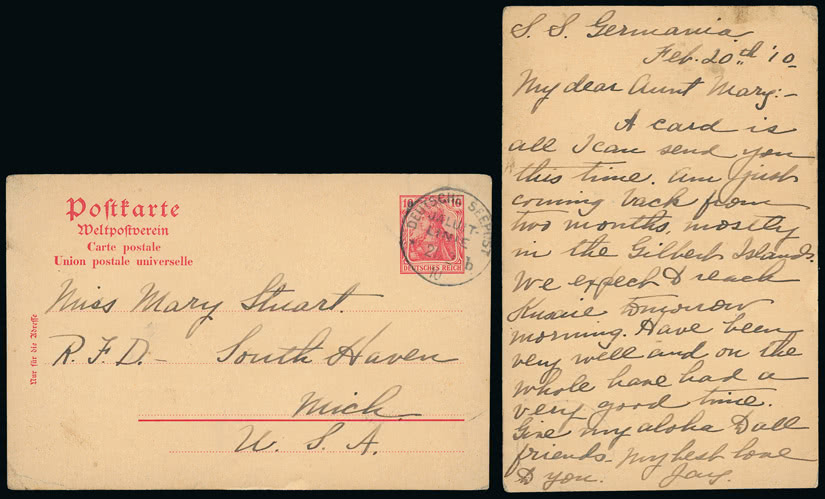 Postkarte
Weltpostverein
Carte postale
Union postale universelle
10 10
DEUTSCHES REICH
DEUTSCHE SEEPOST
JALUIT-
LINIE
b
10
Nur für die Adresse
Miss Mary Stuart.
R. F. D. – South Haven
Mich.
U. S. A.
S. S. Germania
Feb. 20th '10
My dear Aunt Mary:–
A card is
all I can send you
this time. Am just
coming back from
two months, mostly
in the Gilbert Islands.
We expect to reach
Kusaie tomorrow
morning. Have been
very well and on the
whole have had a
very good time.
Give my aloha to all
friends. My best love
to you. Jay.